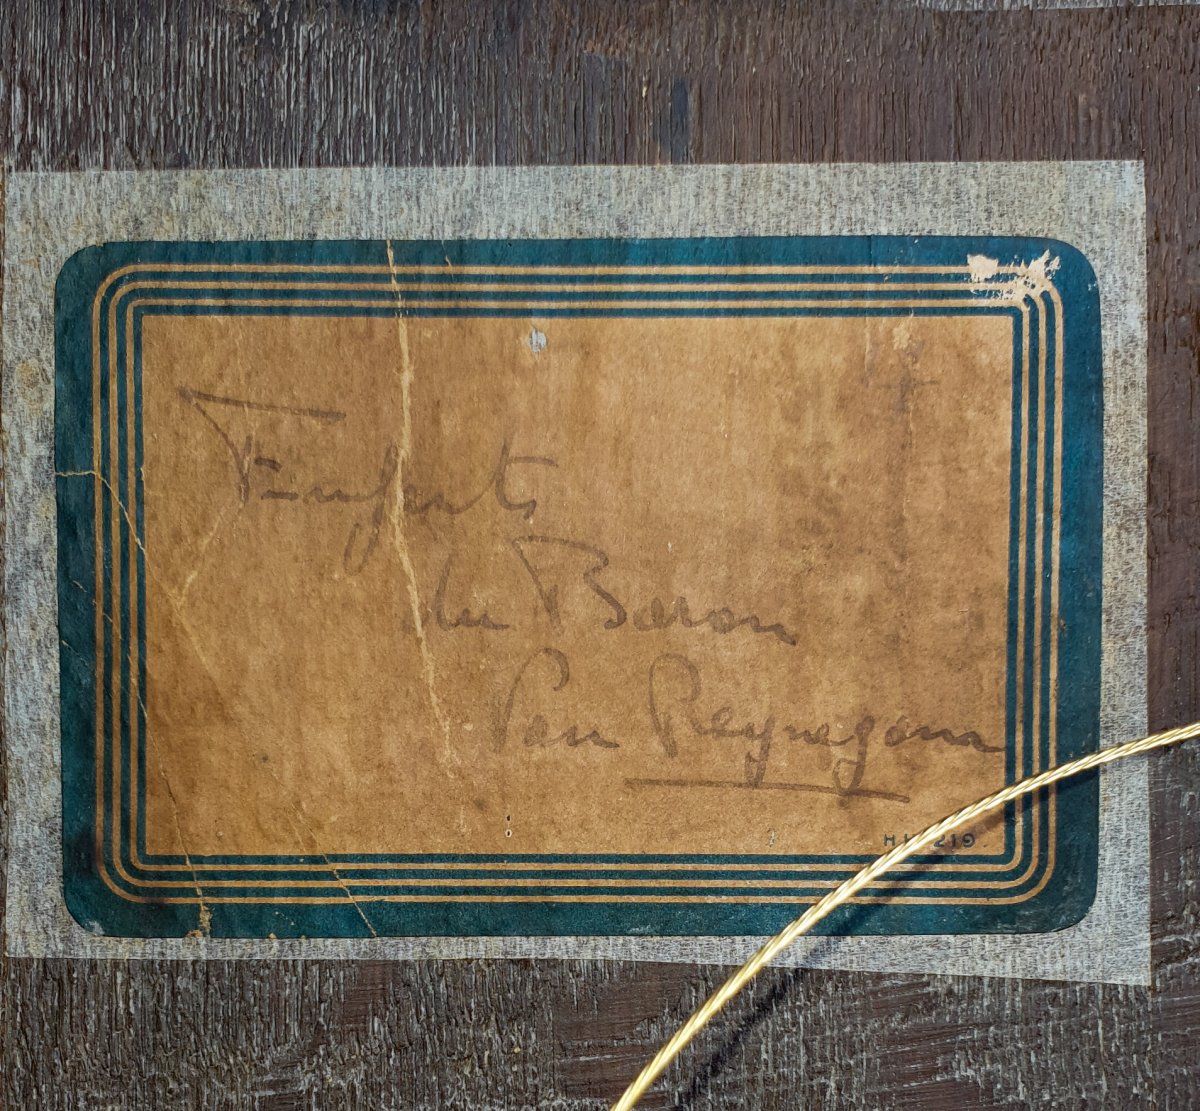 Enfants
du Baron
Van Reynegom